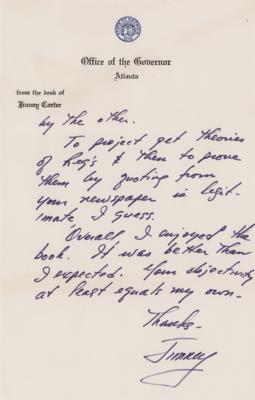 Office of the Governor
Atlanta
from the desk of
Jimmy Carter
by the other.
To project get theories
of Reg's & then to prove
them by quoting from
your newspaper is legit-
imate I guess.
Overall I enjoyed the
book. It was better than
I expected. Your objectivity
at least equals my own-
Thanks-
Jimmy